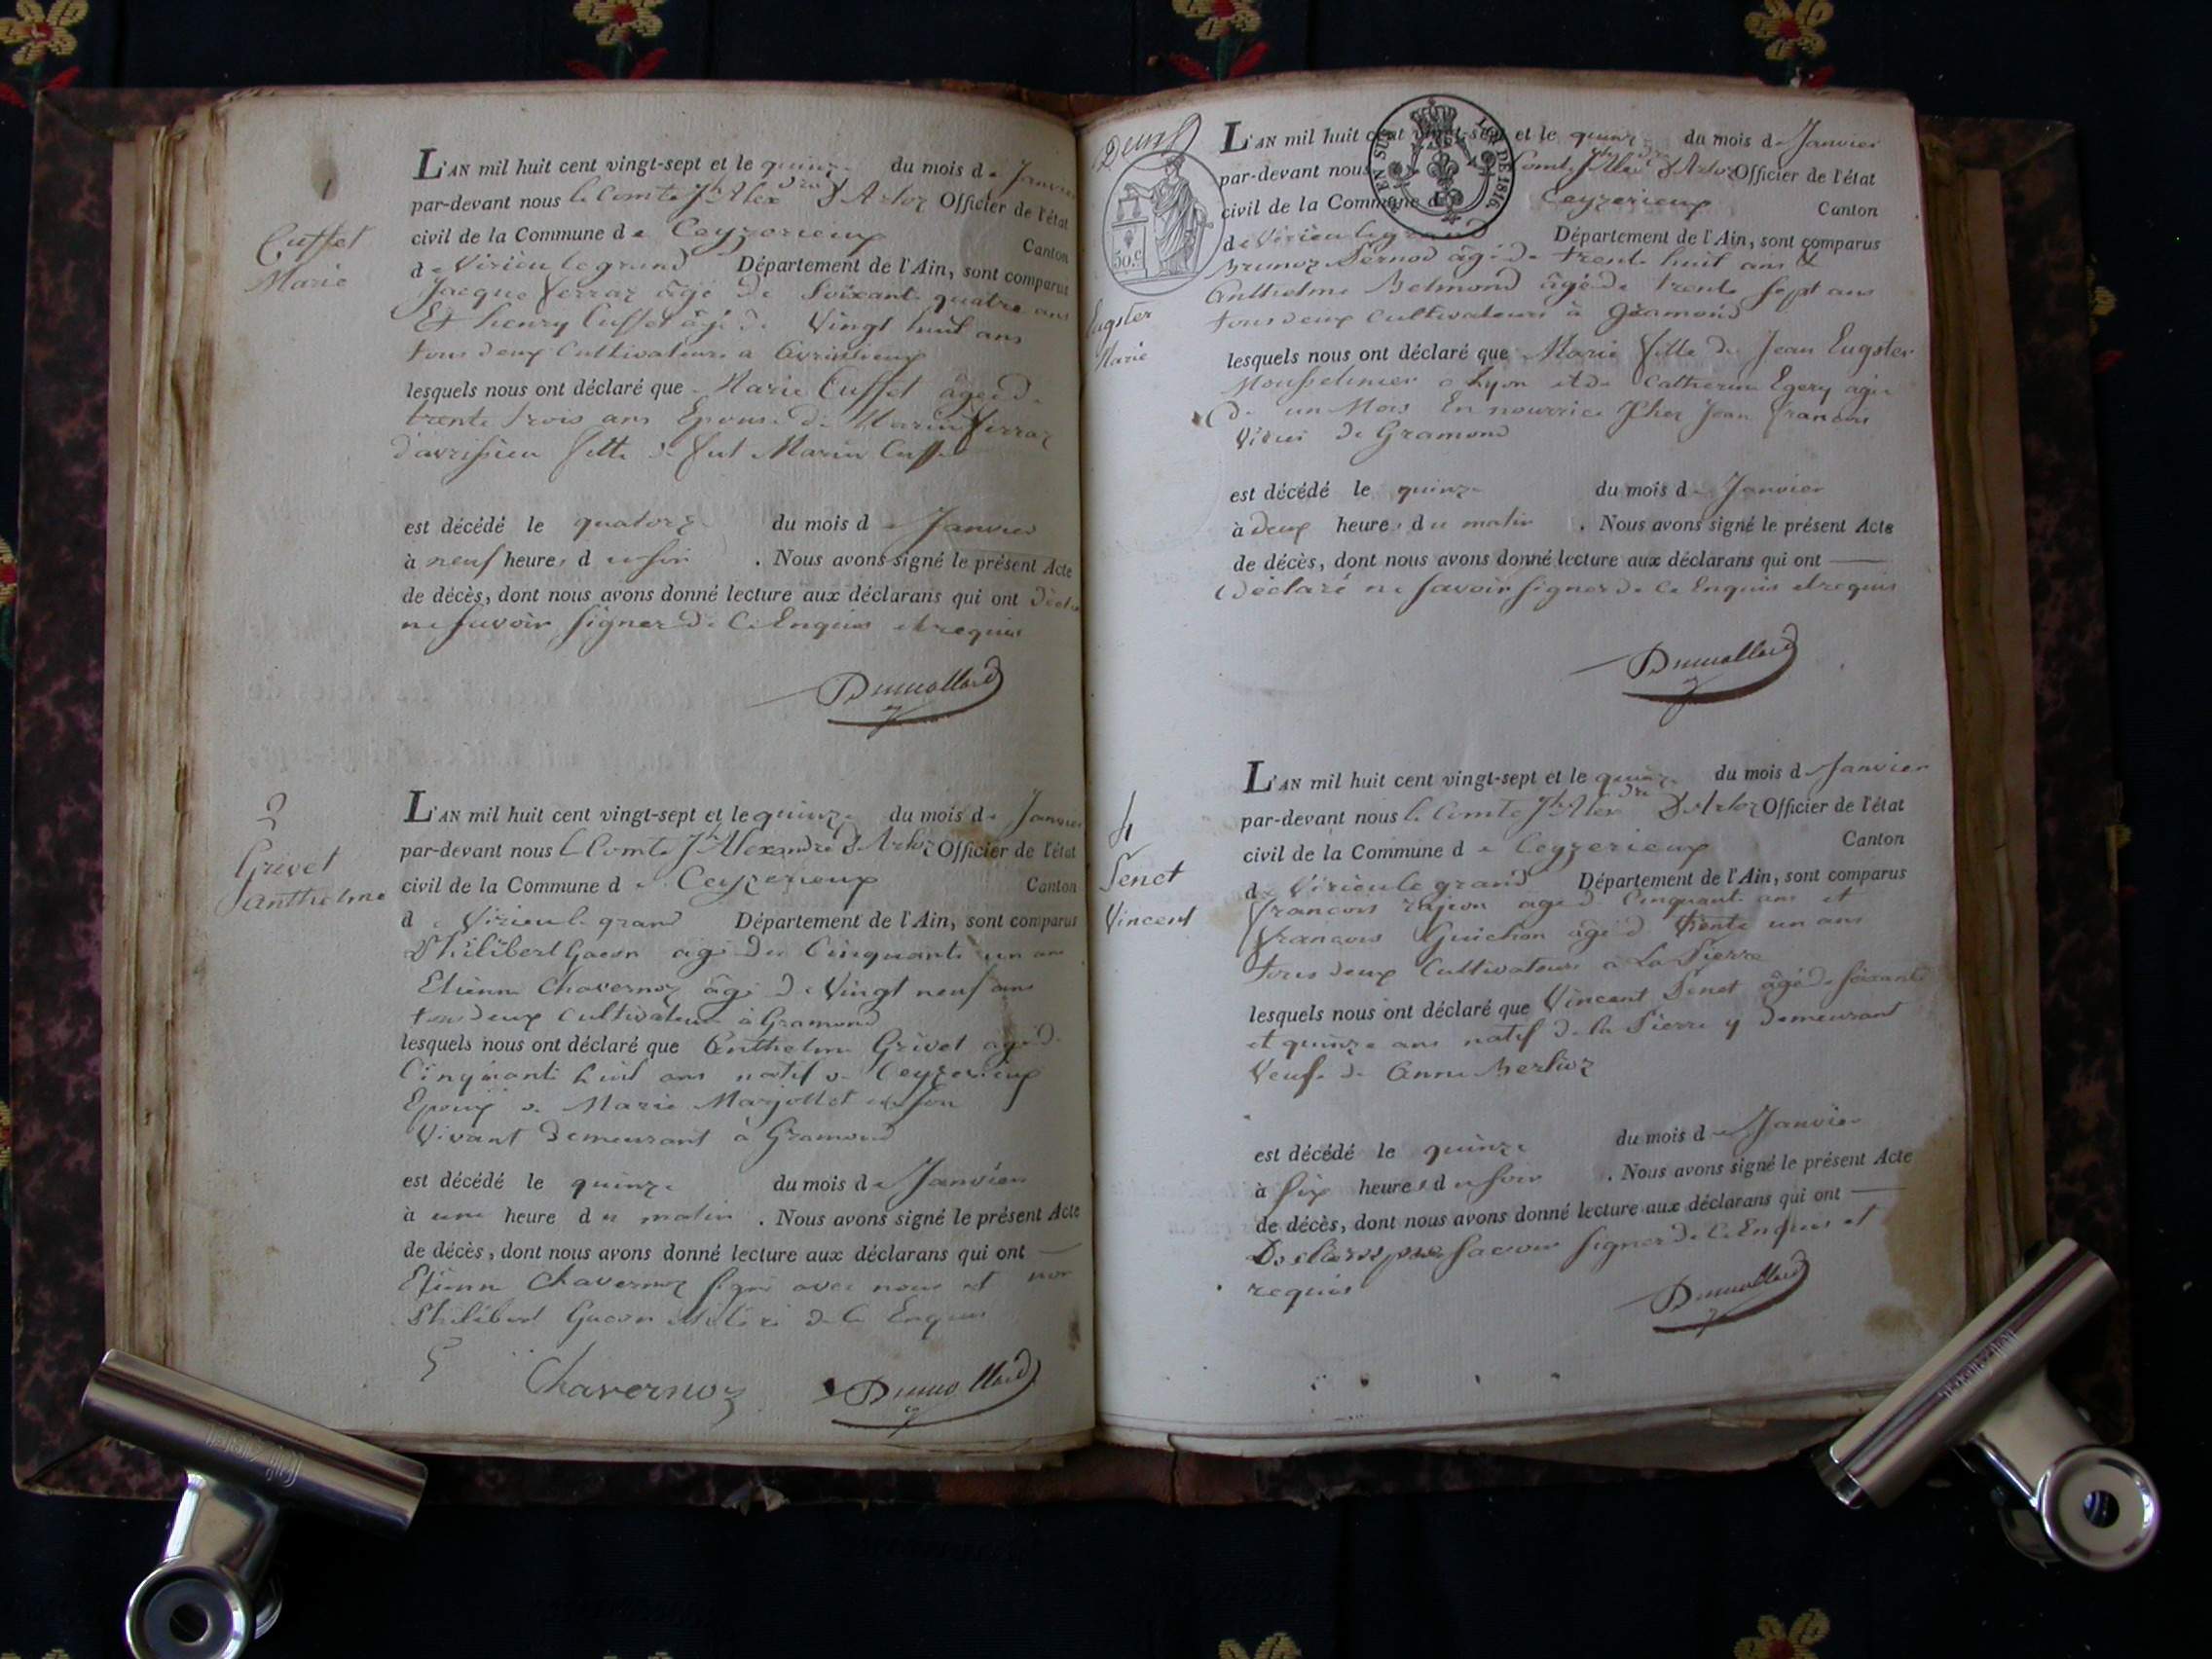 1
Cuffet
Marie
L'AN mil huit cent vingt-sept et le quinze du mois de Janvier
par-devant nous le Comte Jh Alexdre d'Arloz Officier de l'état
civil de la Commune de Ceyzerieux Canton
de Virieu le grand Département de l'Ain, sont comparus
Jacque ferraz âgé de Soixante quatre ans
Et henry Cuffet âgé de Vingt huit ans
tous deux Cultivateurs a Avrissieux
lesquels nous ont déclaré que Marie Cuffet âgée de
trente trois ans Epouse de Marin ferraz
d'avrissieu fille de Marin Cuffet
est décédé le quatorze du mois de Janvier
à neuf heures du soir . Nous avons signé le présent Acte
de décès, dont nous avons donné lecture aux déclarans qui ont
ne savoir signer de Ce Enquis et requis
Dumollard
2
Grivet
anthelme
L'AN mil huit cent vingt-sept et le quinze du mois de Janvier
par-devant nous le Comte Jh Alexandre d'Arloz Officier de l'état
civil de la Commune de Ceyzerieux Canton
de Virieu le grand Département de l'Ain, sont comparus
Philibert Gacon agé de Cinquante un ans
Etienne Chavernoz âgé de Vingt neuf ans
tous deux cultivateurs à Gramond
lesquels nous ont déclaré que Anthelme Grivet agé de
Cinquante huit ans natif de Ceyzerieux
Epoux de Marie Marjollet en son
Vivant demeurant à Gramond
est décédé le quinze du mois de Janvier
à une heure du matin . Nous avons signé le présent Acte
de décès, dont nous avons donné lecture aux déclarans qui ont
Etienne Chavernoz signé avec nous et non
Philibert Gacon de Ce Enquis
Chavernoz Dumollard
EN SUS LOI DE 1816.
50.c
Eugster
Marie
L'AN mil huit cent vingt-sept et le quinze du mois de Janvier
par-devant nous Comte Jh d'Arloz Officier de l'état
civil de la Commune de Ceyzerieux Canton
de Virieu le grand Département de l'Ain, sont comparus
Brunoz Pernod âgé de trente huit ans &
Anthelme Belmond âgé de trente sept ans
tous deux Cultivateurs à Gramond
lesquels nous ont déclaré que Marie fille de Jean Eugster
Mousselinier a Lyon et de Catherine Egery agée
de un Mois En nourrice Chez Jean francois
de Gramond
est décédé le quinze du mois de Janvier
à deux heures du matin . Nous avons signé le présent Acte
de décès, dont nous avons donné lecture aux déclarans qui ont
déclaré ne savoir signer de Ce Enquis et requis
Dumollard
4
Senet
Vincent
L'AN mil huit cent vingt-sept et le quinze du mois de Janvier
par-devant nous le Comte Jh Alexdre d'Arloz Officier de l'état
civil de la Commune de Ceyzerieux Canton
de Virieu le grand Département de l'Ain, sont comparus
francois Rajeon âgé de Cinquante ans et
francois Guichon âgé de trente un ans
tous deux Cultivateurs a La Pierre
lesquels nous ont déclaré que Vincent Senet âgé de soixante
et quinze ans natif de la Pierre y demeurant
Veuf de Anne Berlioz
est décédé le quinze du mois de Janvier
à six heures du soir . Nous avons signé le présent Acte
de décès, dont nous avons donné lecture aux déclarans qui ont
savoir signer de Ce Enquis et
requis
Dumollard